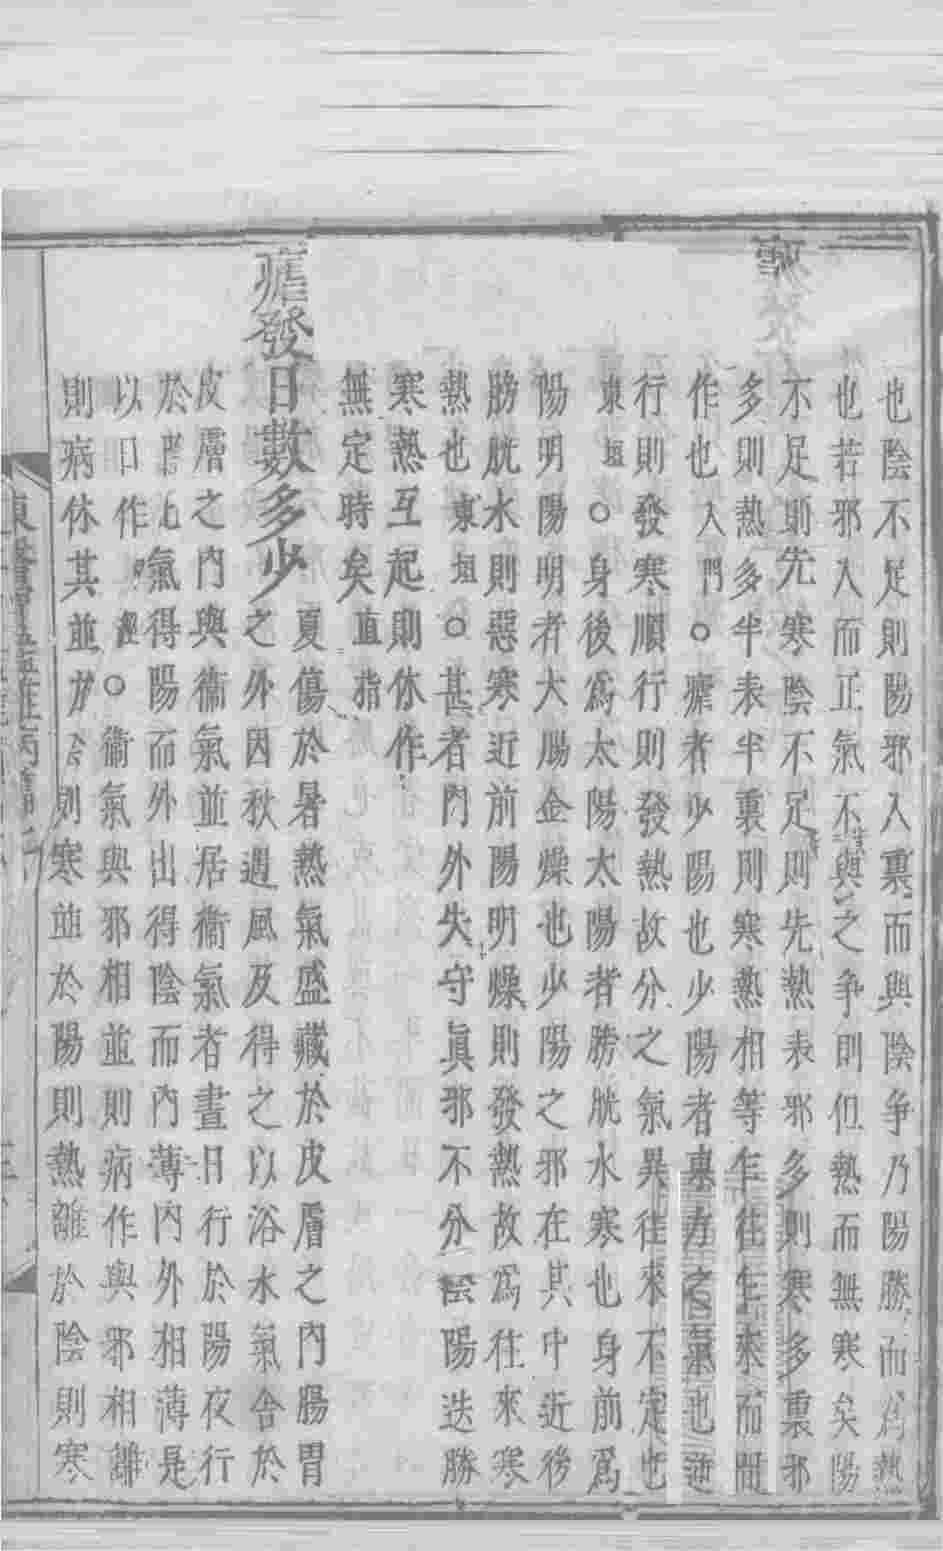 也陰不足則陽邪入裏而與陰争乃陽勝而爲熱
也若邪入而正氣不與之争則但熱而無寒矣陽
不足則先寒陰不足則先熱表邪多則寒多裏邪
多則熱多半表半裏則寒熱相等乍往乍來而間
作也入門○瘧者少陽也少陽者東方之氣也逆
行則發寒順行則發熱故分之氣異往來不定也
東垣○身後爲太陽太陽者膀胱水寒也身前爲
陽明陽明者大腸金燥也少陽之邪在其中近後
膀胱水則惡寒近前陽明燥則發熱故爲往來寒
熱也東垣○甚者内外失守眞邪不分陰陽迭勝
寒熱互起則休作
無定時矣直指
瘧發日數多少
夏傷於暑熱氣盛藏於皮膚之内腸胃
之外因秋遇風及得之以浴水氣舍於
皮膚之内與衞氣並居衞氣者晝日行於陽夜行
於陰此氣得陽而外出得陰而内薄内外相薄是
以日作内經○衞氣與邪相並則病作與邪相離
則病休其並於陰則寒並於陽則熱離於陰則寒